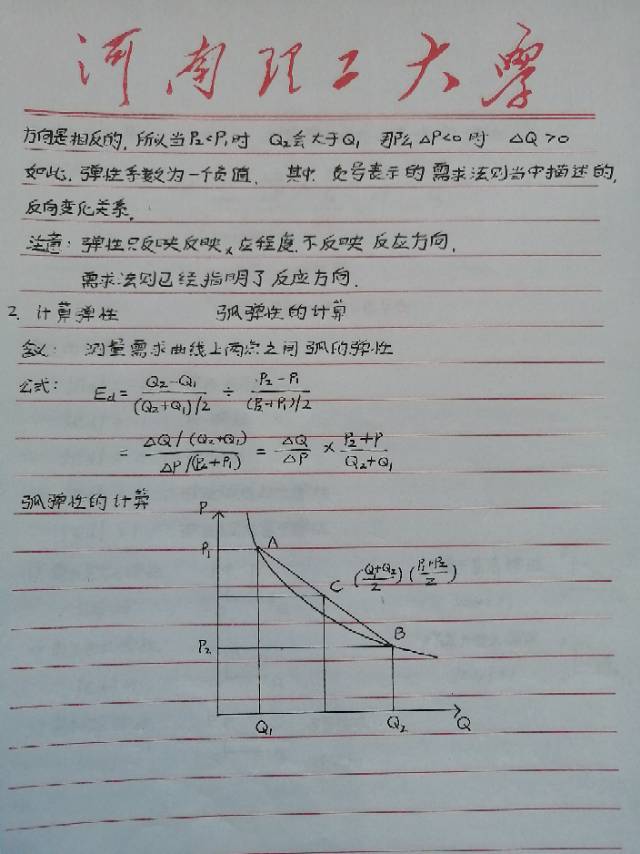 河南理工大学
方向是相反的，所以当P₂<P₁时 Q₂会大于Q₁ 那么△P<0时 △Q>0
如此，弹性系数为一个负值， 其中 负号表示的需求法则当中描述的，
反向变化关系，
注意：弹性只反映反映应程度，不反映 反应方向，
需求法则已经指明了反应方向．
2．计算弹性 弧弹性的计算
含义： 测量需求曲线上两点之间弧的弹性
公式： Ed = (Q₂-Q₁)/((Q₂+Q₁)/2) ÷ (P₂-P₁)/((P₂+P₁)/2)
= (△Q/(Q₂+Q₁))/(△P/(P₂+P₁)) = △Q/△P × (P₂+P)/(Q₂+Q₁)
弧弹性的计算
P
P₁ A
C ((Q₁+Q₂)/2) ((P₁+P₂)/2)
P₂ B
Q₁ Q₂ Q